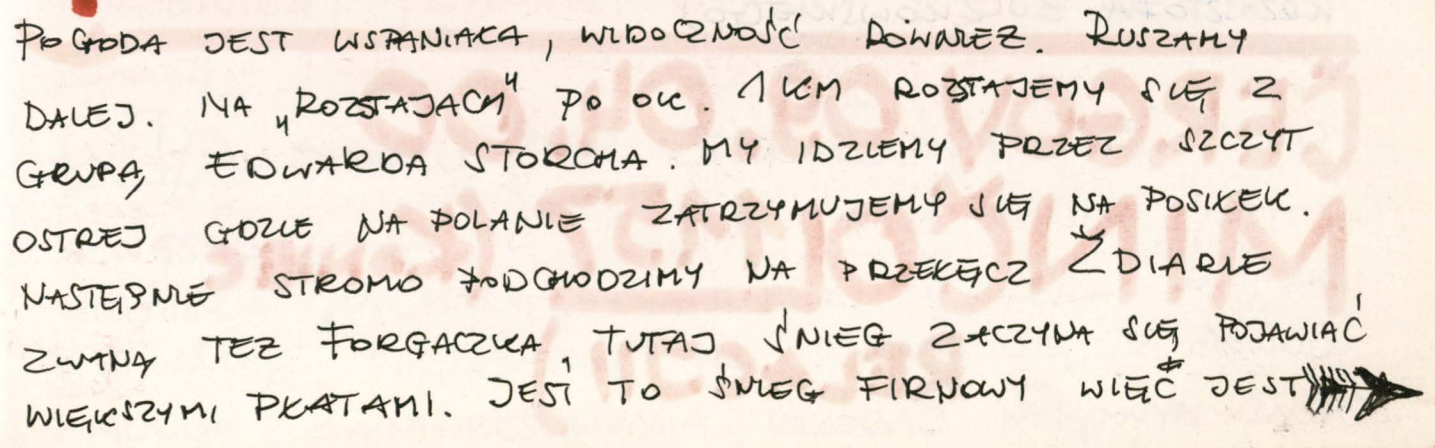 POGODA JEST WSPANIAŁA, WIDOCZNOŚĆ RÓWNIEŻ. RUSZAMY
DALEJ. NA „ROZSTAJACH" PO OK. 1 KM ROZSTAJEMY SIĘ Z
GRUPĄ EDWARDA STORCHA. MY IDZIEMY PRZEZ SZCZYT
OSTREJ GDZIE NA POLANIE ZATRZYMUJEMY SIĘ NA POSIŁEK.
NASTĘPNIE STROMO PODCHODZIMY NA PRZEŁĘCZ ŽDIARIE
ZWANĄ TEŻ FORGACZKA, TUTAJ ŚNIEG ZACZYNA SIĘ POJAWIAĆ
WIĘKSZYMI PŁATAMI. JEST TO ŚNIEG FIRNOWY WIĘC JEST